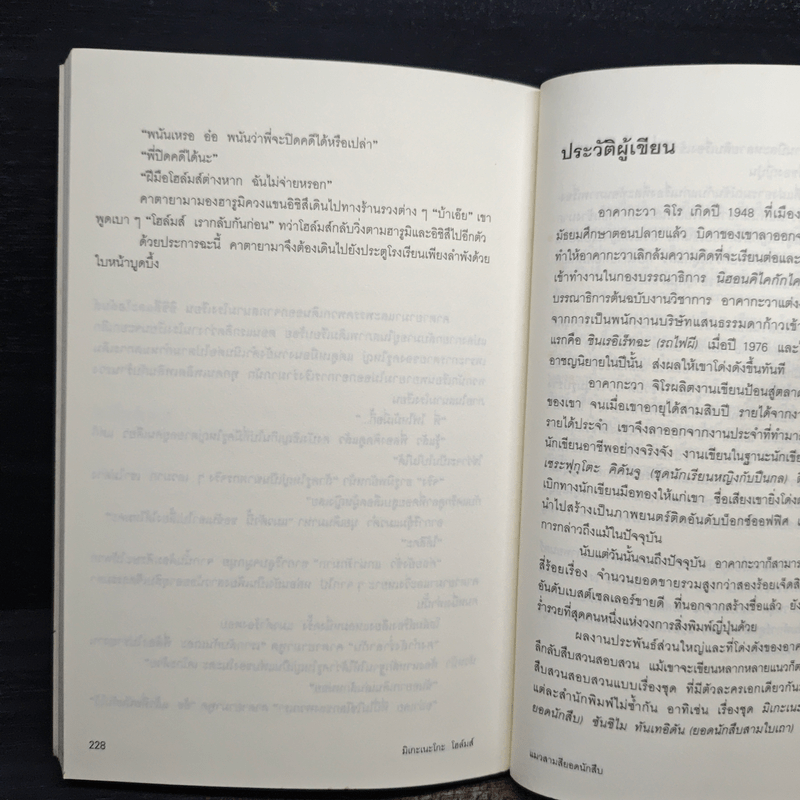 “พนันเหรอ อ๋อ พนันว่าพี่จะปิดคดีได้หรือเปล่า”
“พี่ปิดคดีได้นะ”
“ฝีมือโฮล์มส์ต่างหาก ฉันไม่จ่ายหรอก”
คาตายามามองฮารูมิควงแขนอิชิสึเดินไปทางร้านรวงต่าง ๆ “บ้าเอ๊ย” เขา
พูดเบา ๆ “โฮล์มส์ เรากลับกันก่อน” ทว่าโฮล์มส์กลับวิ่งตามฮารูมิและอิชิสึไปอีกตัว
ด้วยประการฉะนี้ คาตายามาจึงต้องเดินไปยังประตูโรงเรียนเพียงลำพังด้วย
ใบหน้าบูดบึ้ง
228
มิเกะเนะโกะ โฮล์มส์
ประวัติผู้เขียน
อาคากะวา จิโร เกิดปี 1948 ที่เมือง
มัธยมศึกษาตอนปลายแล้ว บิดาของเขาลาออกจ
ทำให้อาคากะวาเลิกล้มความคิดที่จะเรียนต่อและ
เข้าทำงานในกองบรรณาธิการ นิฮอนคิไคกักไค
บรรณาธิการต้นฉบับงานวิชาการ อาคากะวาแต่ง
จากการเป็นพนักงานบริษัทแสนธรรมดาก้าวเข้า
แรกคือ ยูเรเร็ชชะ (รถไฟผี) เมื่อปี 1976 และ
อาชญนิยายในปีนั้น ส่งผลให้เขาโด่งดังขึ้นทันที
อาคากะวา จิโรผลิตงานเขียนป้อนสู่ตลาด
ของเขา จนเมื่อเขาอายุได้สามสิบปี รายได้จากงา
รายได้ประจำ เขาจึงลาออกจากงานประจำที่ทำมา
นักเขียนอาชีพอย่างจริงจัง งานเขียนในฐานะนักเขีย
เซระฟุกุโตะ คิคันจู (ชุดนักเรียนหญิงกับปืนกล)
เบิกทางนักเขียนมือทองให้แก่เขา ชื่อเสียงเขายิ่งโด่ง
นำไปสร้างเป็นภาพยนตร์ติดอันดับบ็อกซ์ออฟฟิศ
การกล่าวถึงแม้ในปัจจุบัน
นับแต่วันนั้นจนถึงปัจจุบัน อาคากะวาก็สามาร
สี่ร้อยเรื่อง จำนวนยอดขายรวมสูงกว่าสองร้อยเจ็ดสิ
อันดับเบสต์เซลเลอร์ขายดี ที่นอกจากสร้างชื่อแล้ว ยัง
ร่ำรวยที่สุดคนหนึ่งแห่งวงการสิ่งพิมพ์ญี่ปุ่นด้วย
ผลงานประพันธ์ส่วนใหญ่และที่โด่งดังของอาค
ลึกลับสืบสวนสอบสวน แม้เขาจะเขียนหลากหลายแนวก็ต
สืบสวนสอบสวนแบบเรื่องชุด ที่มีตัวละครเอกเดียวกัน
แต่ละสำนักพิมพ์ไม่ซ้ำกัน อาทิเช่น เรื่องชุด มิเกะเนะ
ยอดนักสืบ) ซันชิไม ทันเทอิดัน (ยอดนักสืบสามใบเถา)
แมวสามสียอดนักสืบ